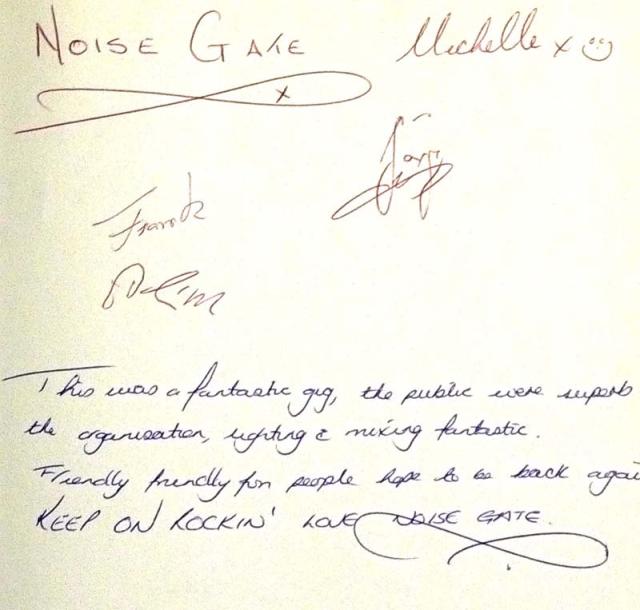 NOISE GATE Michelle x
x
Jörg
Frank
This was a fantastic gig, the public were superb
the organisation, lighting & mixing fantastic.
Friendly friendly fun people hope to be back again
KEEP ON ROCKIN' LOVE NOISE GATE.